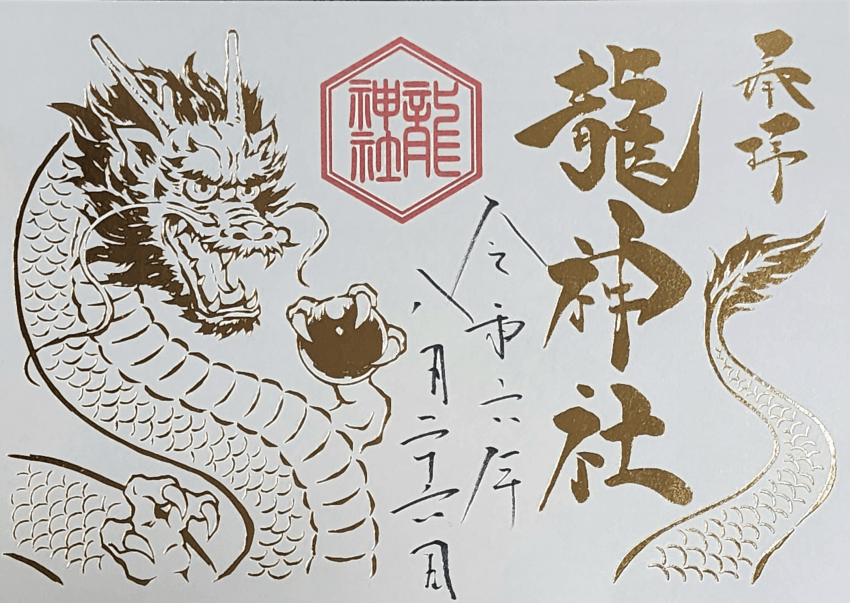 奉拝
龍神社
令和六年
八月二十六日
龍神社